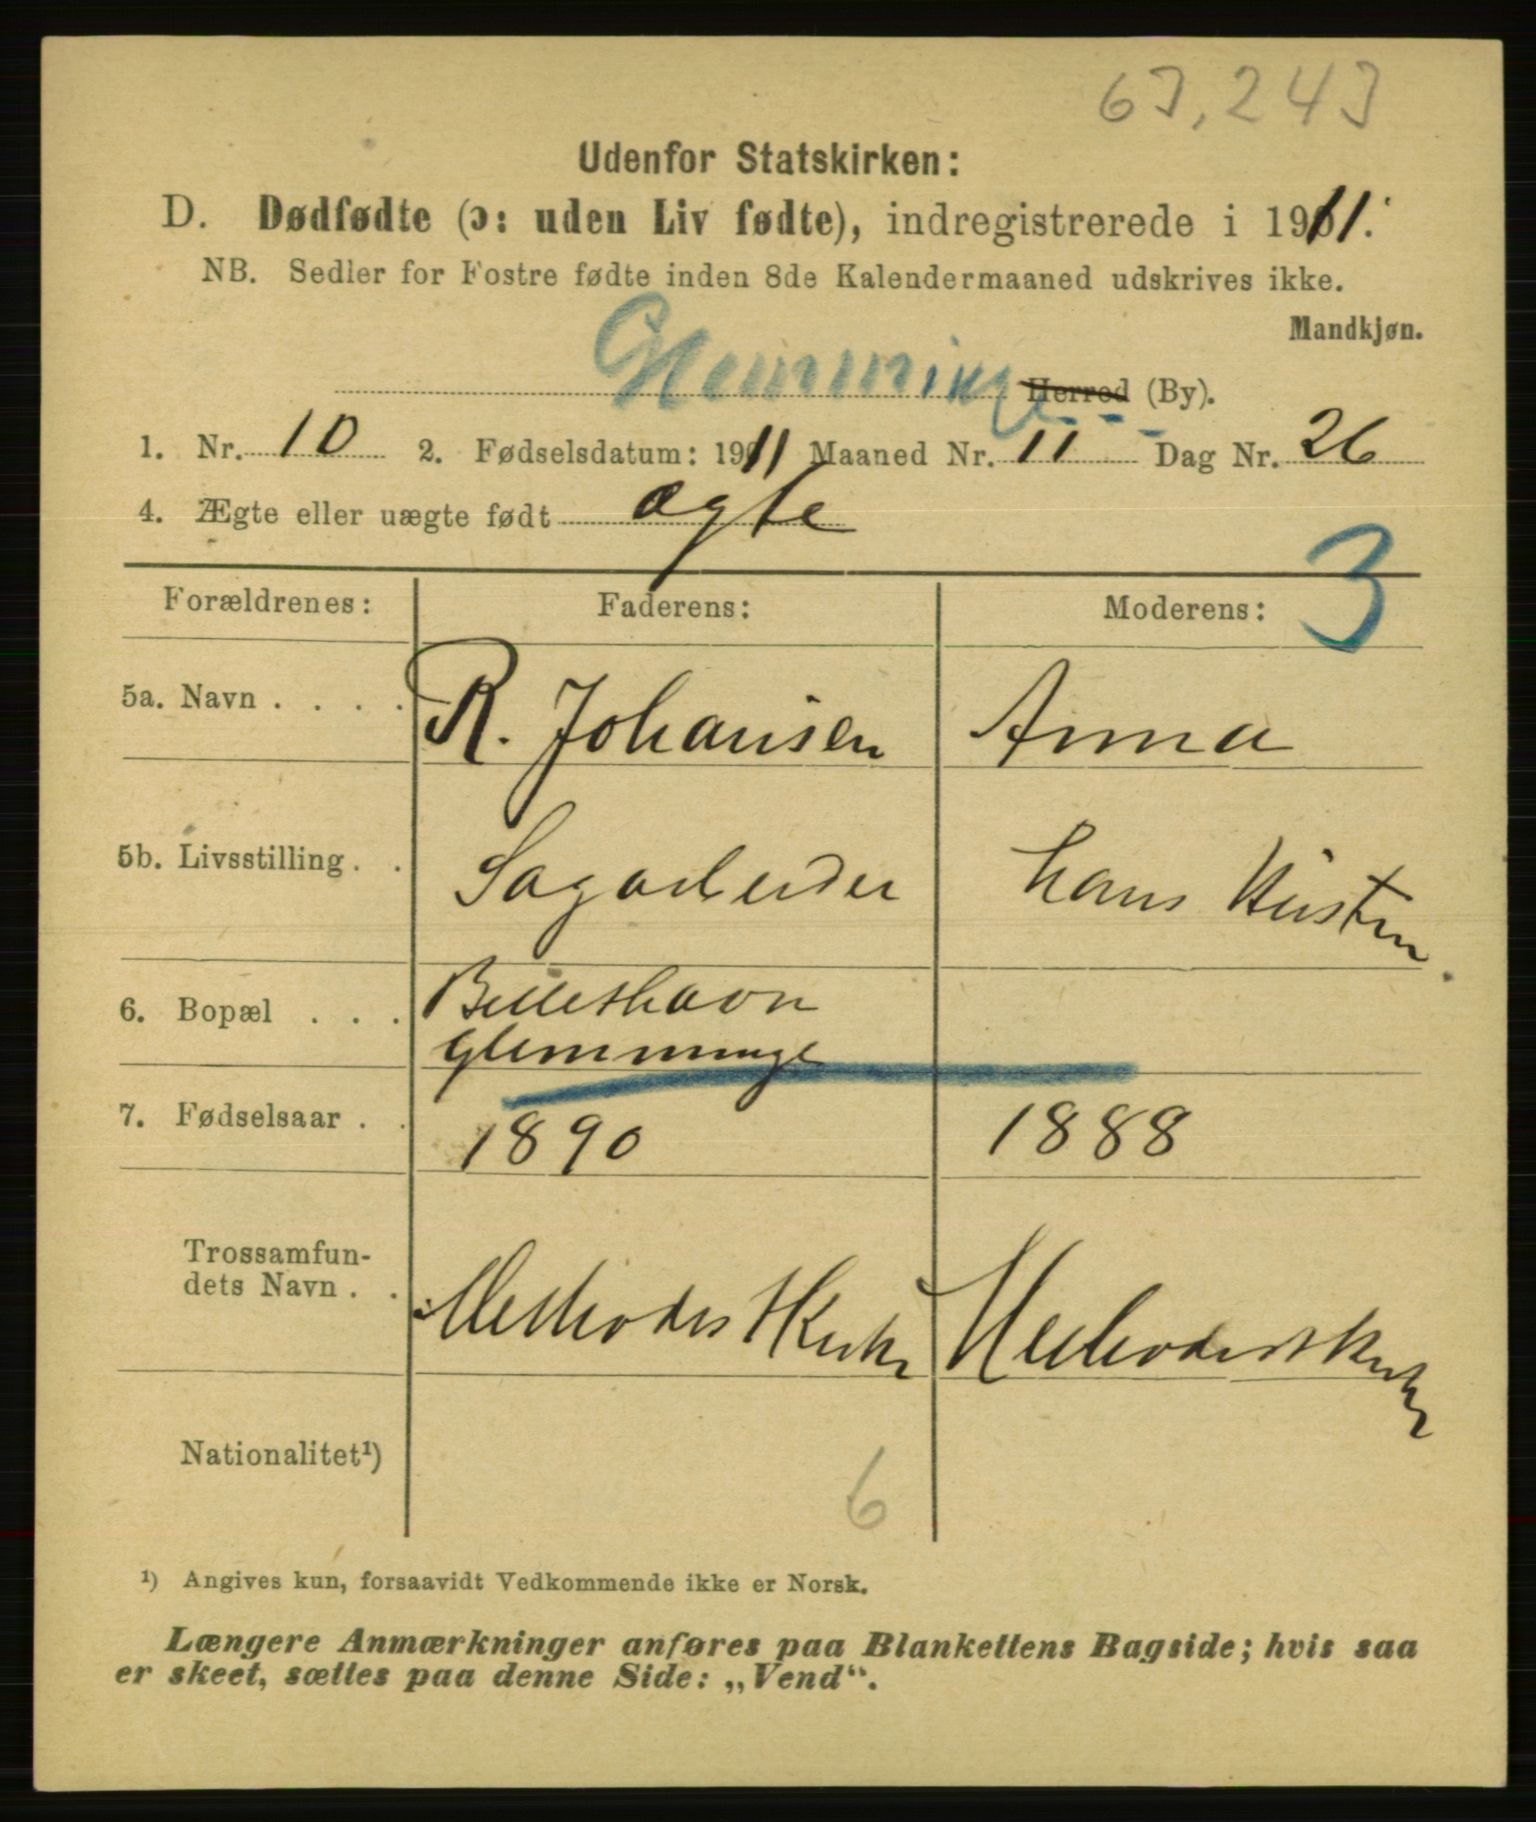 67,243
Udenfor Statskirken:
D. Dødfødte (ɔ: uden Liv fødte), indregistrerede i 1911.
NB. Sedler for Fostre fødte inden 8de Kalendermaaned udskrives ikke.
Mandkjøn.
Glemminge Herred (By).
1. Nr. 10 2. Fødselsdatum: 1911 Maaned Nr. 11 Dag Nr. 26
4. Ægte eller uægte født ægte
3
Forældrenes: Faderens: Moderens:
5a. Navn . . . . R. Johansen Anna
5b. Livsstilling . . Sagarbeider hans Hustru.
6. Bopæl . . . 
Glemminge
7. Fødselsaar . . 1890 1888
Trossamfun-
dets Navn . . Methodistkirke Methodistkirke
Nationalitet¹)
6
¹) Angives kun, forsaavidt Vedkommende ikke er Norsk.
Længere Anmærkninger anføres paa Blankettens Bagside; hvis saa
er skeet, sættes paa denne Side: „Vend“.